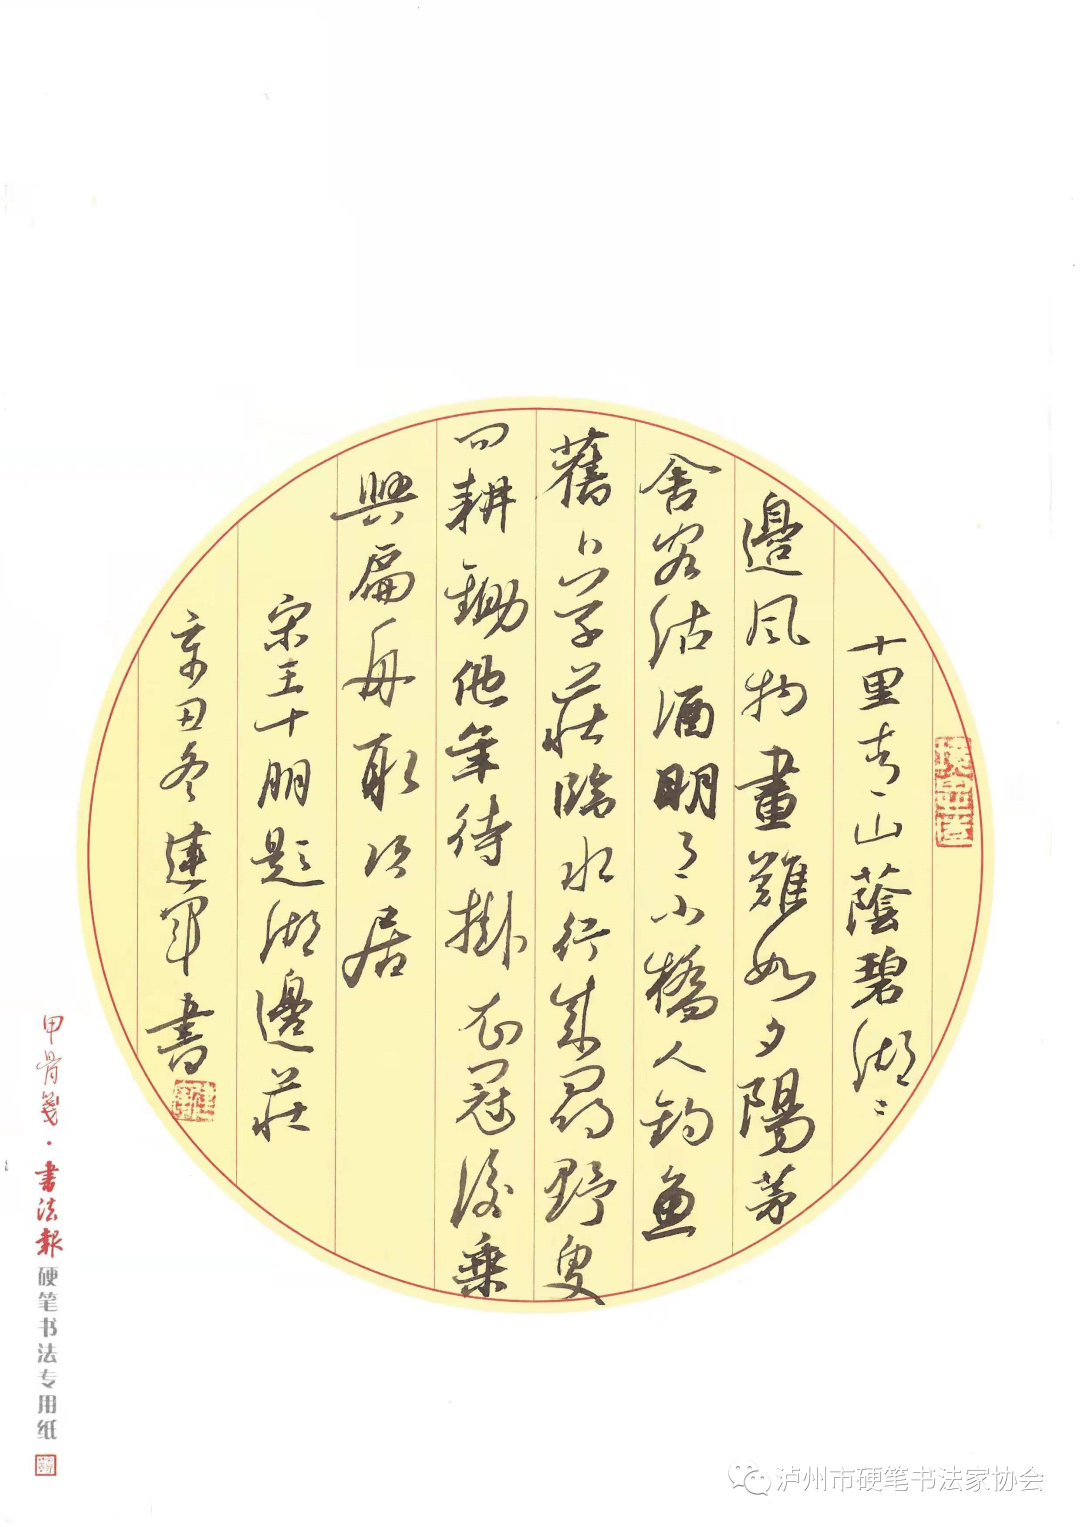 十里青山蔭碧湖〻
邊風物畫難如夕陽茅
舍客沽酒明月小橋人釣魚
舊卜草莊臨水竹來尋野叟
問耕鋤他年待掛衣冠後乘
興扁舟取次居
宋王十朋題湖邊莊
辛丑冬建軍書
甲骨箋·書法報硬笔书法专用纸
泸州市硬笔书法家协会